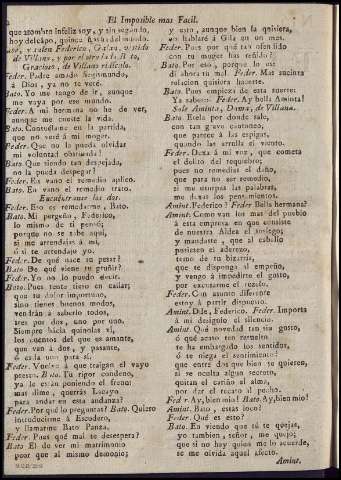 El Imposible mas Facil.
que asombro infelìz soy, y sin segundo,
Vase, y salen Federico, Galan, vestido
de Villano, y por el otro lado Bato,
Gracioso, de Villano ridiculo.
Feder. Padre amado Segismundo,
à Dios, ya no te veré.
Bato. Yo me tengo de ir, aunque
me vaya por ese mundo.
Feder. A mi hermana no he de ver,
aunque me cueste la vida.
Bato. Consuelame en la partida,
que no veré à mi muger.
Feder. Que no la pueda olvidar
mi voluntad obstinada!
Bato. Que siendo tan despejada,
no la pueda despegar!
Feder. En vano el remedio aplico.
Bato. En vano el remedio trato.
Encuentranse los dos.
Feder. Eso es remediarme, Bato.
Bato. Mi pergeño, Federico,
lo mismo de tì pensó;
porque no se sabe aqui,
si me arrendaàis à mì,
ó si te arrendajo yo.
Feder. De qué nace tu pesar?
Bato. De qué viene tu gruñir?
Feder. Yo no lo puedo decir.
Bato. Pues tente tieso en callar;
que tu dolor importuno,
sino tienes buenos modos,
vendrán à saberlo todos,
tres por dos, uno por uno.
Siempre hacia quinolas vì,
los cuentos del que es amante,
que van à dos, y pasante,
Feder. Vuelve à que traigan el vayo
presto. Bato. Tu rigor condeno,
ya le están poniendo el freno:
mas dime, querrás Lacayo
para andar en esta andanza?
Feder. Por qué lo preguntas? Bato. Quiero
introducirme à Escudero,
y llamarme Bato Panza.
Feder. Pues qué mal te desespera?
Bato. El de ver mi matrimonio
peor que al mismo demonio;
y esto, aunque bien la quisiera,
no hablaré à Gila en un mes.
Feder. Pues por qué tan ofendido
con tu muger has reñido?
Bato. Por eso, porque lo es:
dì ahora tu mal. Feder. Mas sucinta
relacion quisiera hacerte.
Bato. Pues empieza de esta suerte:
Ya sabes::- Feder. Ay bella Aminta!
Sale Aminta, Dama, de Villana.
Bato. Etela por donde sale,
con tan grave contoneo,
que parece à las espigas,
quando las arrulla el viento.
Feder. Dexa à mi voz, que cometa
el delito del requiebro;
pues no remedias el daño,
que para no ser remedio,
si me usurpas las palabras,
me dexas los pensamientos.
Amint. Federico? Feder. Bella hermana?
Amint. Como van los mas del pueblo
à esta empresa en que consiste
de nuestra Aldea el sosiego,
y mandaste, que al caballo
pusiesen el aderezo,
temo de tu bizarria,
que te disponga al empeño,
y vengo à impedirte el gusto,
por excusarme el rezelo.
Feder. Con asunto diferente
estoy à partir dispuesto.
Amint. Dile, Federico. Feder. Importa
à mi designio el silencio.
Amint. Qué novedad tan sin gusto,
ó qué acaso tan resuelto
te ha embargado los sentidos,
ó te niega el sentimiento?
que entre dos que bien se quieren,
si se oculta algun secreto,
quitan el cariño al alma,
por dar el recato al pecho.
Feder. Ay, bien mio! Bato. Ay, bien mio!
Amint. Bato, estás loco?
Feder. Qué es esto?
Bato. En viendo que tù te quejas,
yo tambien, señor, me quejo;
que si no hay quien me lo acuerde,
se me olvida aquel afecto.
Amint.